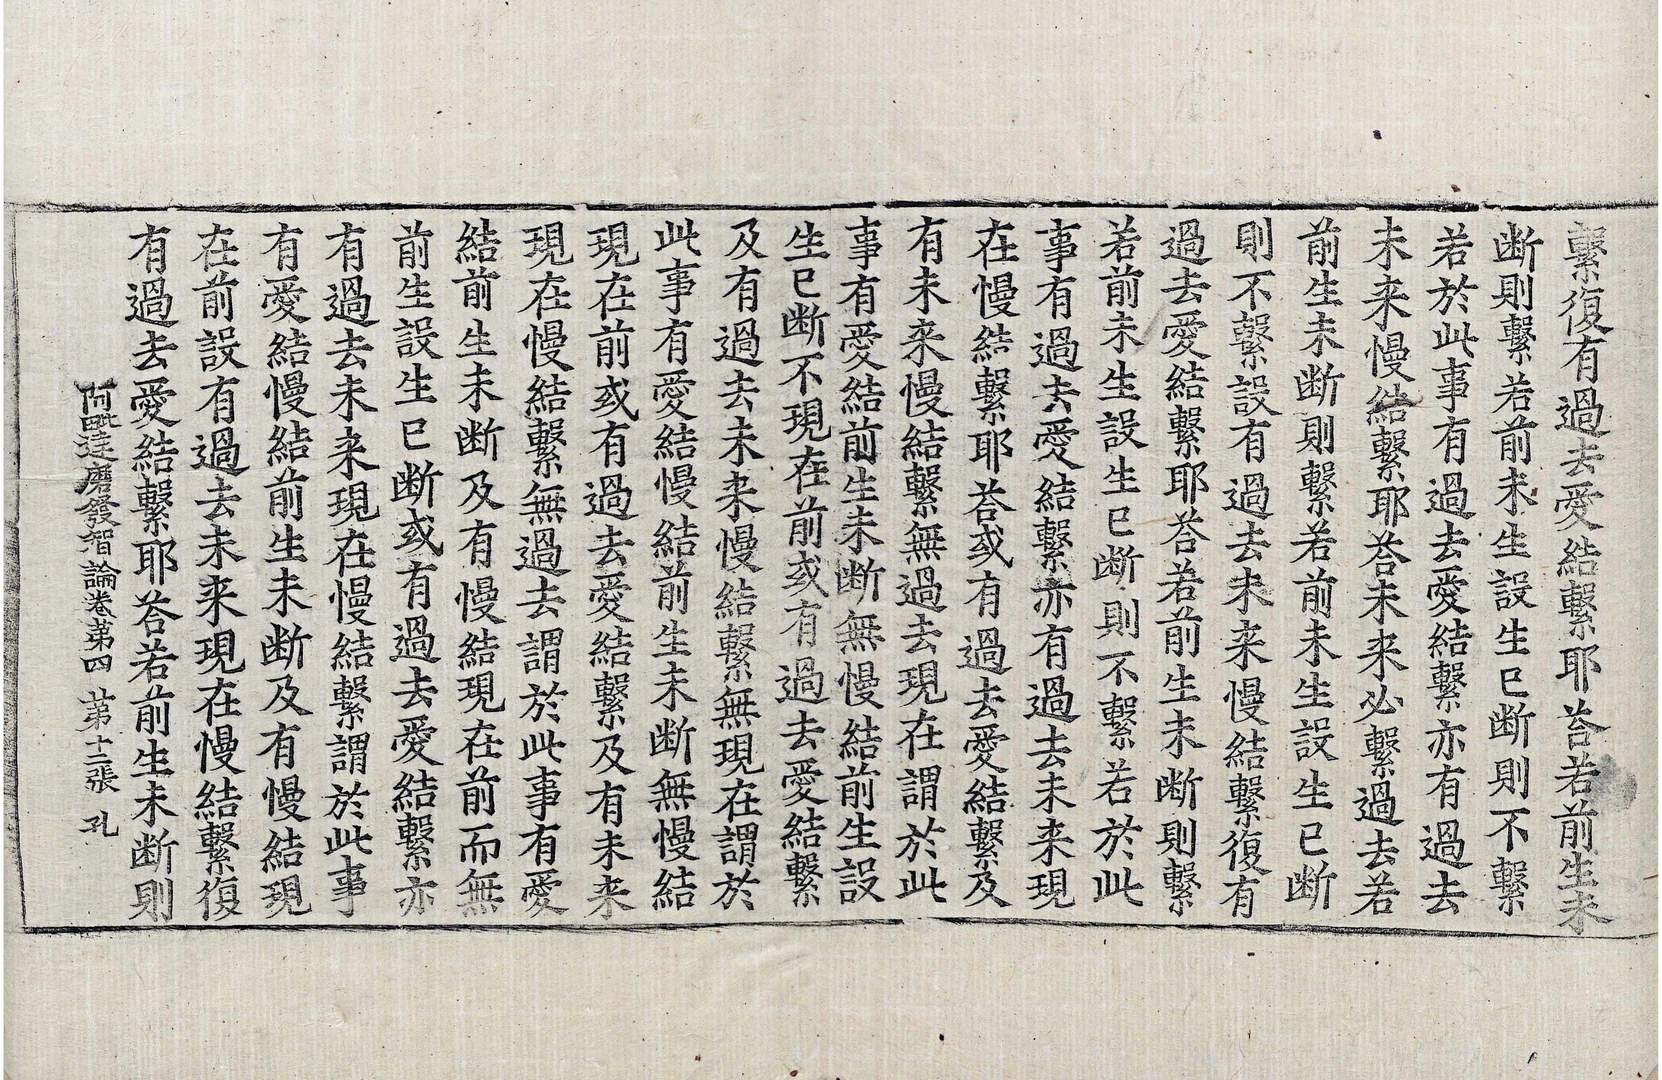 繫復有過去愛結繫耶荅若前生未
断則繫若前未生設生已断則不繫
若於此事有過去愛結繫亦有過去
未来慢結繫耶荅未来必繫過去若
前生未断則繫若前未生設生已断
則不繫設有過去未来慢結繫復有
過去愛結繫耶荅若前生未断則繫
若前未生設生已断則不繫若於此
事有過去愛結繫亦有過去未来現
在慢結繫耶荅或有過去愛結繫及
有未来慢結繫無過去現在謂於此
事有愛結前生未断無慢結前生設
生已断不現在前或有過去愛結繫
及有過去未来慢結繫無現在謂於
此事有愛結慢結前生未断無慢結
現在前或有過去愛結繫及有未来
現在慢結繫無過去謂於此事有愛
結前生未断及有慢結現在前而無
前生設生已断或有過去愛結繫亦
有過去未来現在慢結繫謂於此事
有愛結慢結前生未断及有慢結現
在前設有過去未来現在慢結繫復
有過去愛結繫耶荅若前生未断則
阿毗達磨發智論卷苐四 苐十三張 孔